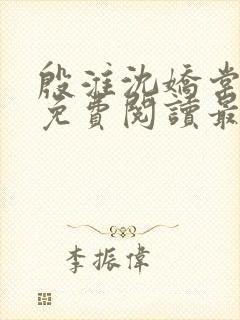 殷淮沈嬌棠
免費閱讀最
李振偉